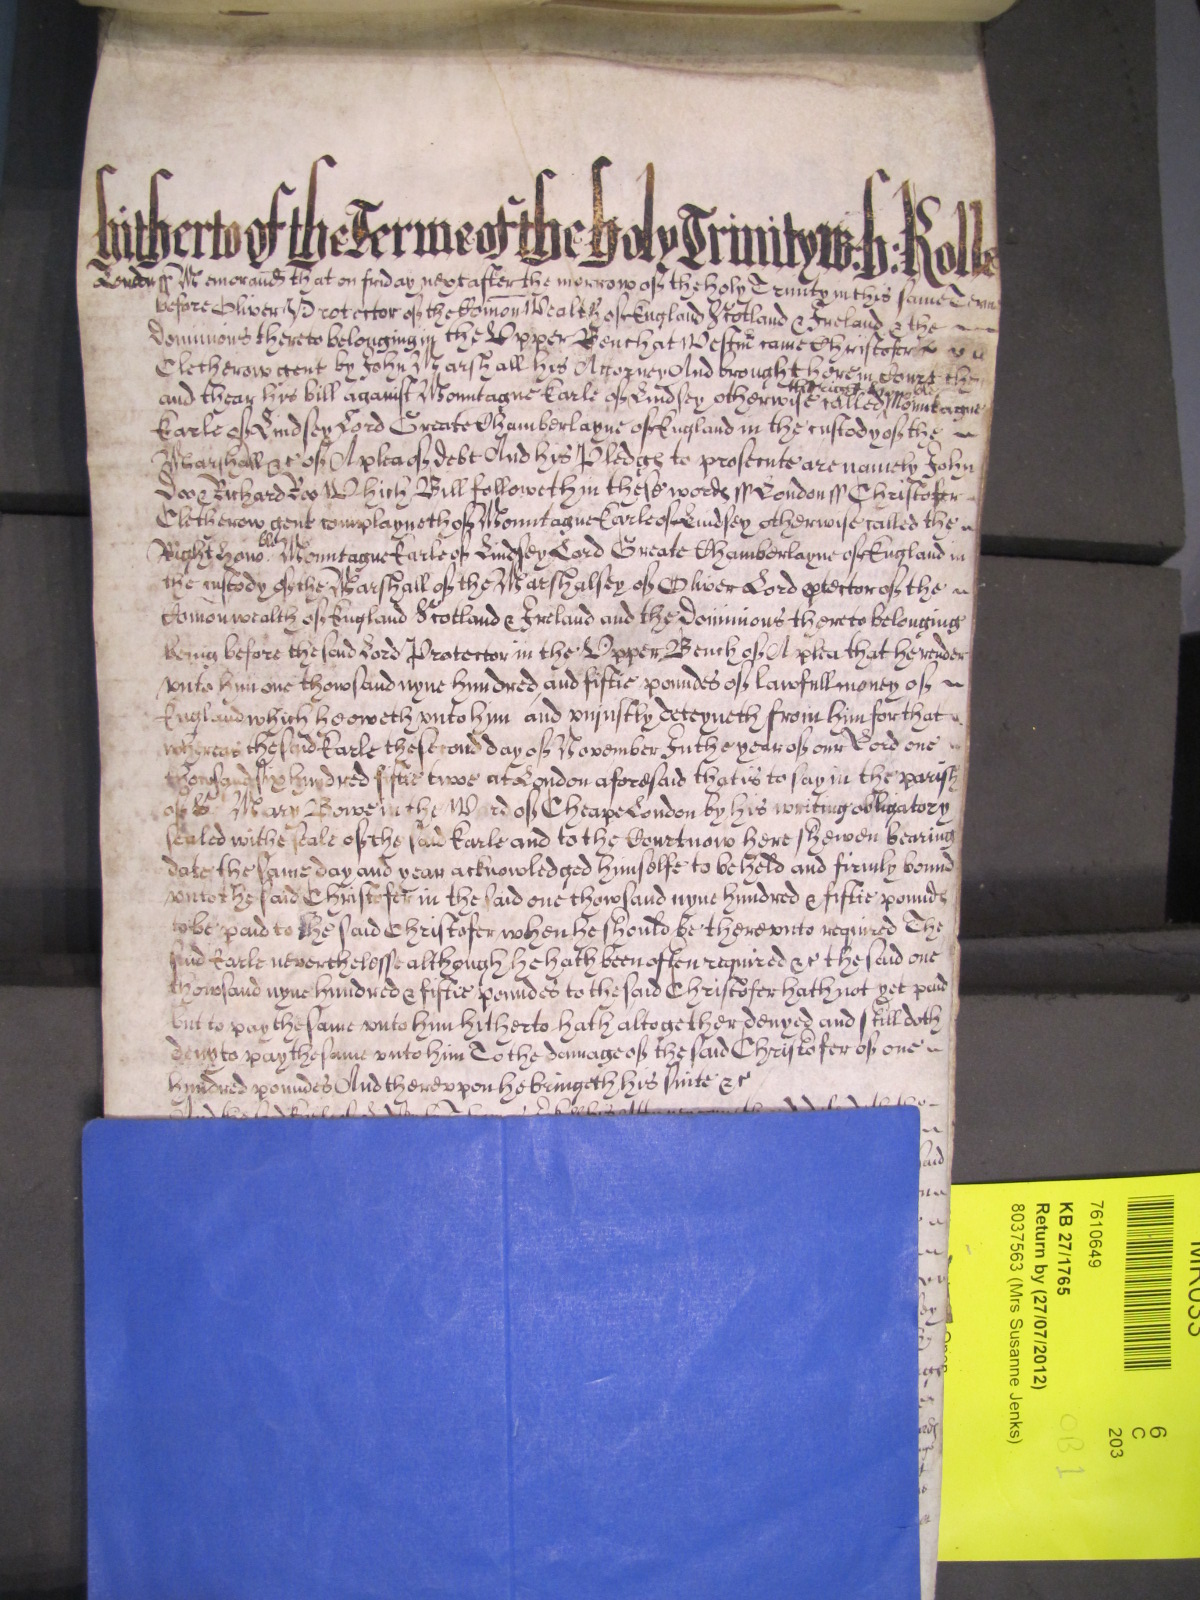 hitherto of the Terme of the holy Trinity w: h: Rolle
London ss Memorand that on friday next after the morrow of the holy Trinity in this same Terme
before Oliver Protector of the Comon Wealth of England Scotland & Ireland & the
dominions thereto belonging in the Upper Bench at Westm came Christofer
Cletherow gent by John Marshall his Attorney And brought here in Court then
and thear his bill against Mountague Earle of Lindsey otherwise called the right Mountague
Earle of Lindsey Lord Greate Chamberlayne of England in the custody of the
Marshall &c of A plea of debt And his Pledges to prosecute are namely John
Doo & Richard Roo Which Bill followeth in these words ss London ss Christofer
Cletherow gent complayneth of Mountague Earle of Lindsey otherwise called the
Right honoble Mountague Earle of Lindsey Lord Greate Chamberlayne of England in
the custody of the Marshall of the Marshalsey of Oliver Lord ptector of the
Comonwealth of England Scotland & Ireland and the Dominions thereto belonging
being before the said Lord Protector in the Upper Bench of A plea that he render
unto him one thowsand nyne hundred and fiftie poundes of lawfull money of
England which he oweth unto him and uniustly deteyneth from him for that
whereas the said Earle the second day of November In the year of our Lord one
thowsand six hundred fiftie twoe at London aforesaid that is to say in the parish
of St Mary Bowe in the Ward of Cheape London by his writing obligatory
sealed withe seale of the said Earle and to the Court now here shewen bearing
date the same day and year acknowledged himselfe to be held and firmly bound
unto the said Christofer in the said one thowsand nyne hundred & fiftie pounds
to be paid to the said Christofer when he should be thereunto required The
said Earle neverthelesse although he hath been often required &c the said one
thowsand nyne hundred & fiftie poundes to the said Christofer hath not yet paid
but to pay the same unto him hitherto hath altogether denyed and still doth
deny to pay the same unto him To the damage of the said Christofer of one
hundred poundes And thereupon he bringeth his suite &c
said
7610649
KB 27/1765
Return by (27/07/2012)
8037563 (Mrs Susanne Jenks)
6
C
203
OB 1
Open